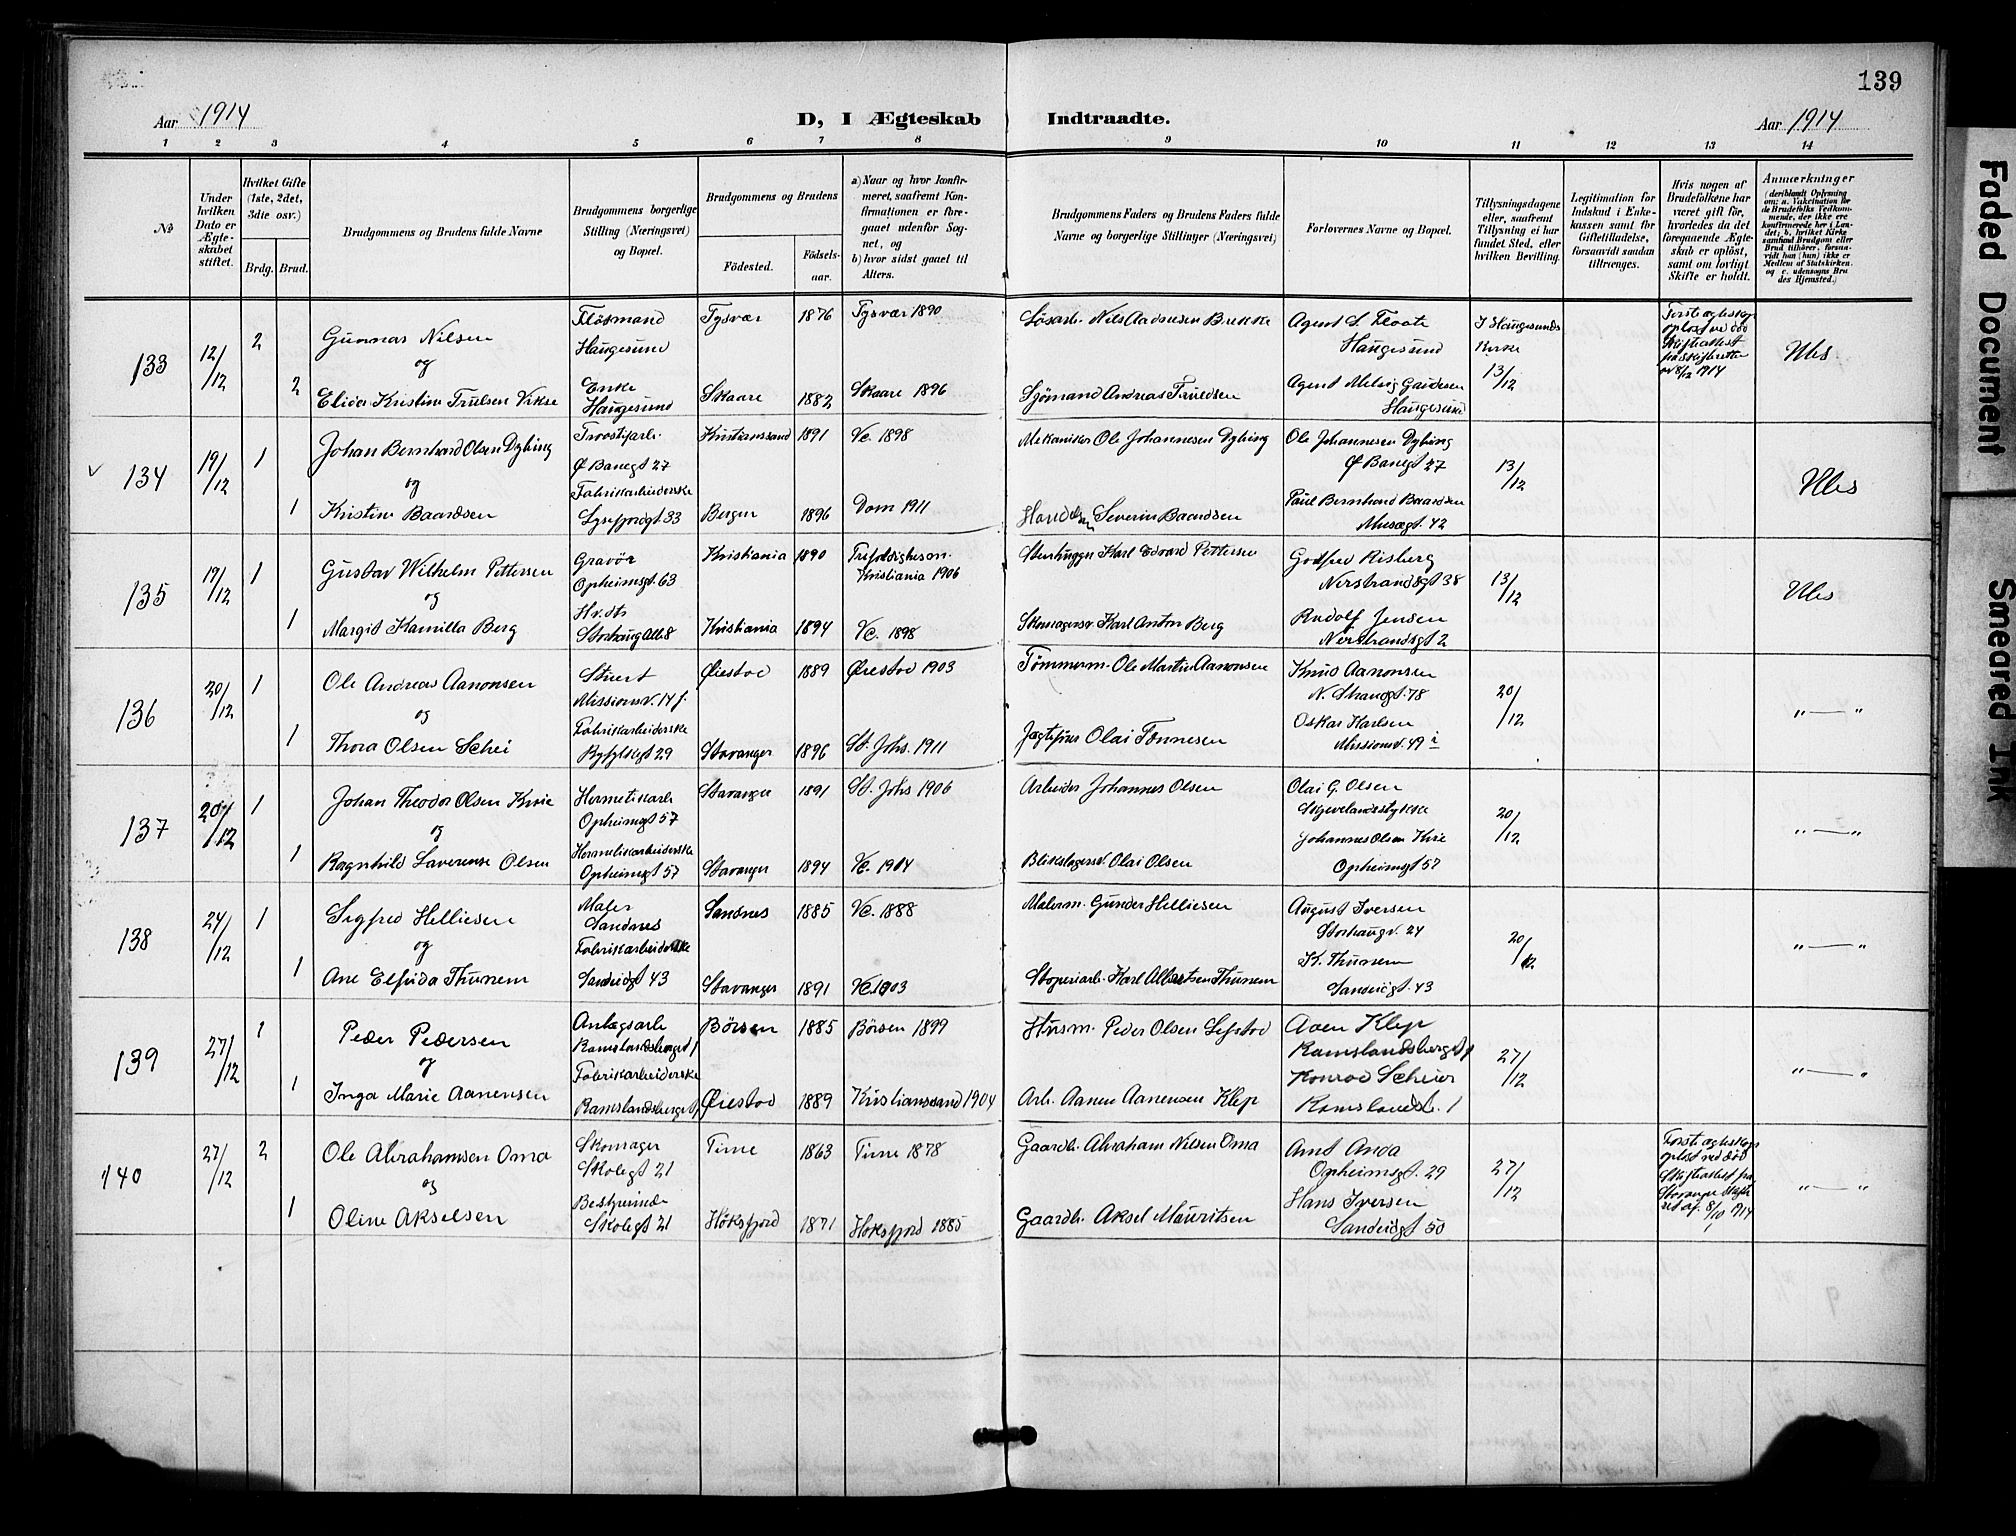 139
Aar 1914
D, I Ægteskab Indtraadte.
Aar 1914
1 2 3 4 5 6 7 8 9 10 11 12 13 14
No
Under hvilken Dato er Ægte-skabet stiftet.
Hvilket Gifte (1ste, 2det, 3die osv.)
Brdg. Brud.
Brudgommens og Brudens fulde Navne
Brudgommens borgerlige Stilling (Næringsvei) og Bopæl.
Brudgommens og Brudens
Födested.
Födsels-aar.
a) Naar og hvor konfir-meret, saafremt Kon-firmationen er fore-gaaet udenfor Sog-net, og b) hvor sidst gaaet til Alters.
Brudgommens Faders og Brudens Faders fulde Navne og borgerlige Stillinger (Næringsvei)
Forlovernes Navne og Bopæl.
Tillysningsdagene eller, saafremt Tillysning ei har fundet Sted, efter hvilken Bevilling.
Legitimation for Indskud i Enke-kassen samt for Giftetilladelse, forsaavidt saadan tiltrænges.
Hvis nogen af Brudefolkene har været gift för, hvorledes da det foregaaende Ægte-skab er oplöst, samt om lovligt Skifte er holdt.
Anmærkninger (deriblandt Oplysning om: a. Vakcination for de Brudefolks Vedkom-mende, der ikke ere konfirmerede her i Lan-det; b. hvilket Kirke-samfund Brudgom eller Brud tilhörer, forsaa-vidt han (hun) ikke er Medlem af Statskirken, og c. udensogns Bru-des Hjemsted.)
133 12/12 2 Gunnar Nilsen Haugesund Tysvær 1876 Tysvær 1890 Nils Agent S. Floate Haugesund I Haugesunds Kirke 13/12
og
2 Kristine Trulsen Vikse Enke Haugesund Skaare 1882 Skaare 1896 Sjømand Andreas Agent Haugesund
134 19/12 1 Johan Bernhard Olsen Dybing Ø Banegt 27 Kristianssand 1891 Vc. 1898 Mekaniker Ole Johannesen Dybing Ole Johannesen Dybing Ø Banegt 27 13/12
og
1 Kristine Baardsen Fabrikarbeiderske Lysefjordgt 33 Bergen 1896 Dom 1911 Severin Baardsen Paul Bernhard Baardsen Musægt. 42
135 19/12 1 Gustav Wilhelm Pettersen Gravör Opheimsgt 63 Kristiania 1890 Kristiania 1906 Stenhugger Karl Edvard Pettersen Godfred Risberg Nerstrandsgt 38 13/12
og
1 Margit Kamilla Berg Storhaug Allé 8 Kristiania 1894 Vc. 1898 Karl Anton Berg Rudolf Jensen Nerstrandsgt 2
136 20/12 1 Ole Andreas Aanonsen Stuert Missionsv. 14 Øiestad 1889 Øiestad 1903 Tömmerm. Ole Martin Aanonsen Knud Aanonsen N. Strandgt. 78 20/12
og
1 Thora Olsen Schei Fabrikarbeiderske Ryfylkegt 29 Stavanger 1896 St. Johs. 1911 Olai Tönnesen Oskar Karlsen Missionsv. 49
137 20/12 1 Johan Theodor Olsen Kvie Hermetikarb. Opheimsgt 57 Stavanger 1891 St. Johs 1906 Arbeider Johannes Olsen Olai G. Olsen Skjevelandsstykke 20/12
og
1 Ragnhild Laverense Olsen Hermetikarbeiderske Opheimsgt 57 Stavanger 1894 Vc. 1904 Olai Olsen Johannes Olsen Kvie Opheimsgt 57
138 24/12 1 Sigfred Helliesen Maler Sandnes Sandnes 1885 Vc. 1888 Malerm. Gunder Helliesen August Iversen Storhaugv. 24 20/12
og
1 Ane Elfrida Thunem Fabrikarbeiderske Sandvigt 43 Stavanger 1891 Vc. 1903 Karl Albertsen Thunem K. Thunem Sandvigt. 43
139 27/12 1 Peder Pedersen Anlægsarb. Ramslandsberget 1 Börsen 1885 Börsen 1899 Husm. Peder Olsen Aaen Klep Ramslandsberget 1 27/12
og
1 Inga Marie Aanensen Fabrikarbeiderske Ramslandsberget 1 Øiestad 1889 Kristianssand 1904 Arb. Aanen Aanensen Klep Konrad Scheier Ramslandsb. 1
140 27/12 2 Ole Abrahamsen Oma Skomager Skolegt 21 Time 1863 Time 1878 Gaardb. Abraham Nilsen Oma Arnt Anda Opheimsgt. 29 27/12
og
1 Oline Akselsen Bestyrerinde Skolegt 21 Høksfjord 1871 Høksfjord 1885 Gaardb. Aksel Mauritsen Hans Iversen Sandvigt 50
Faded Document
Smeared Ink